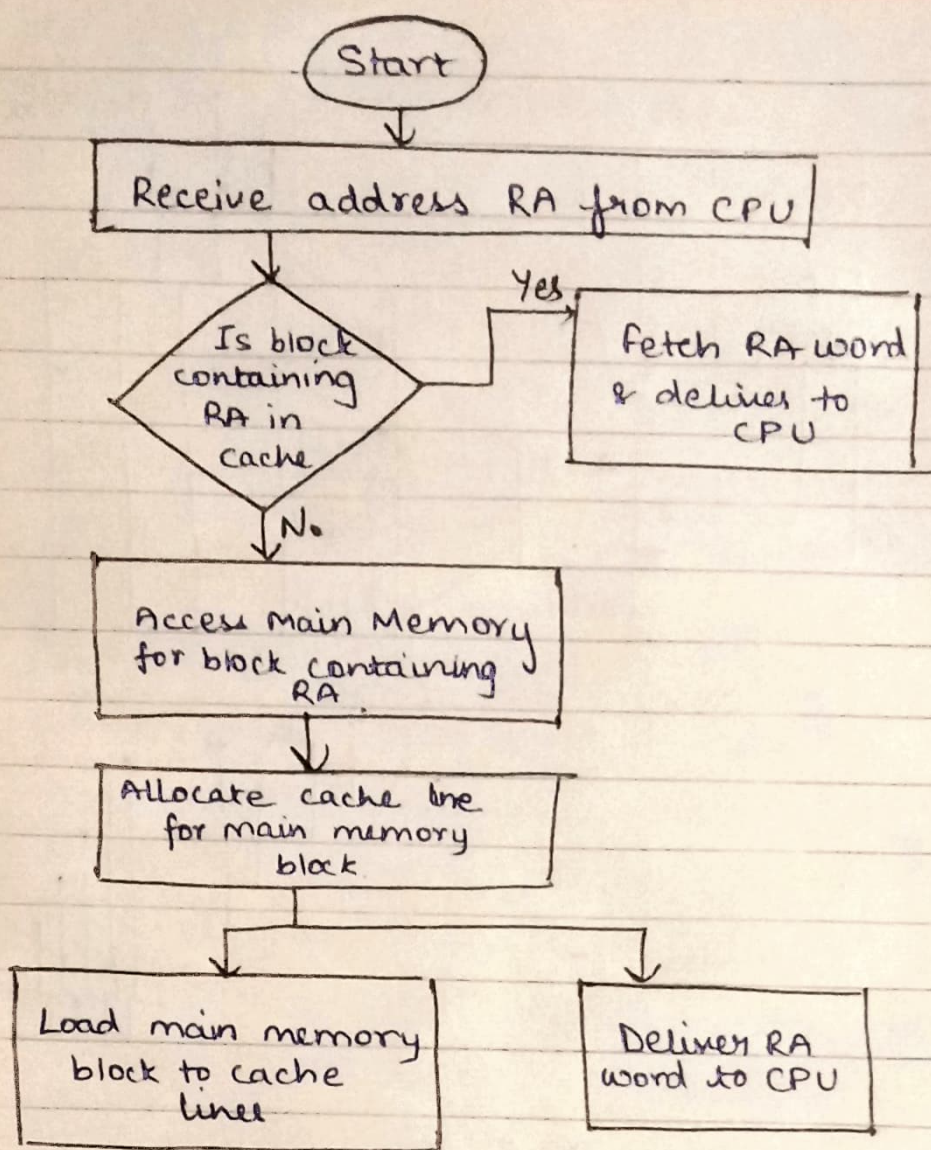 Start
Receive address RA from CPU
Yes
Is block
containing
RA in
cache
fetch RA word
& delives to
CPU
No
Access Main Memory
for block containing
RA
Allocate cache line
for main memory
block
Load main memory
block to cache
lines
Deliver RA
word to CPU